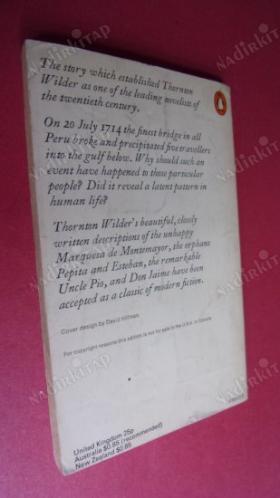 The story which established Thornton
Wilder as one of the leading novelists of
the twentieth century.
On 20 July 1714 the finest bridge in all
Peru broke and precipitated five travellers
into the gulf below. Why should such an
event have happened to those particular
people? Did it reveal a latent pattern in
human life?
Thornton Wilder's beautiful, closely
written descriptions of the unhappy
Marquesa de Montemayor, the orphans
Pepita and Esteban, the remarkable
Uncle Pio, and Don Jaime have been
accepted as a classic of modern fiction.
Cover design by David
For copyright reasons this edition is not for sale in the U.S.A. or Canada
United Kingdom 25p
Australia $0.85 (recommended)
New Zealand $0.85
NadirKitap